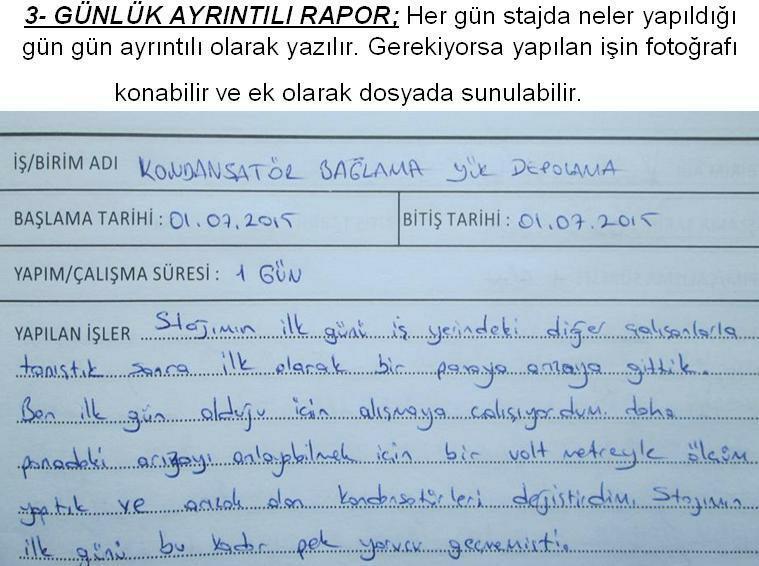 3- GÜNLÜK AYRINTILI RAPOR; Her gün stajda neler yapıldığı
gün gün ayrıntılı olarak yazılır. Gerekiyorsa yapılan işin fotoğrafı
konabilir ve ek olarak dosyada sunulabilir.
İŞ/BİRİM ADI KONDANSATÖR BAĞLAMA YÜK DEPOLAMA
BAŞLAMA TARİHİ : 01.07.2015 BİTİŞ TARİHİ : 01.07.2015
YAPIM/ÇALIŞMA SÜRESİ : 1 GÜN
YAPILAN İŞLER Stajımın ilk günü iş yerindeki diğer çalışanlarla
tanıştık sonra ilk olarak bir panoya arızaya gittik.
Ben ilk gün olduğu için alışmaya çalışıyordum daha
panodaki arızayı anlayabilmek için bir volt metreyle ölçüm
yaptık ve arızalı olan kondansatörleri değiştirdim. Stajımın
ilk günü bu kadar pek yorucu geçmemişti.